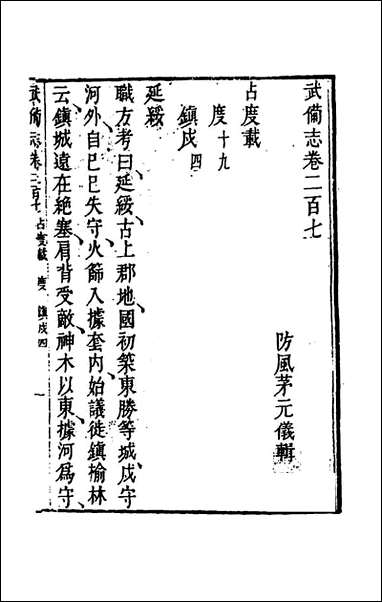 武備志卷二百七
防風茅元儀輯
占度載
度十九
鎮戍四
延綏
職方考曰延綏古上郡地國初築東勝等城戍守
河外自巳巳失守火篩入據套内始議徙鎮榆林
云鎮城遠在絶塞肩背受敵神木以東據河爲守
武備志卷二百七 占度載 度 鎮戍四 一